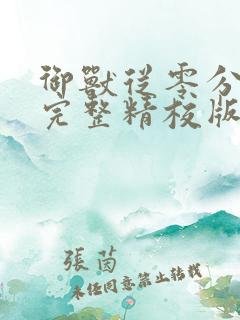 御獸從零分
完整精校版
張茵
未經同意禁止轉載